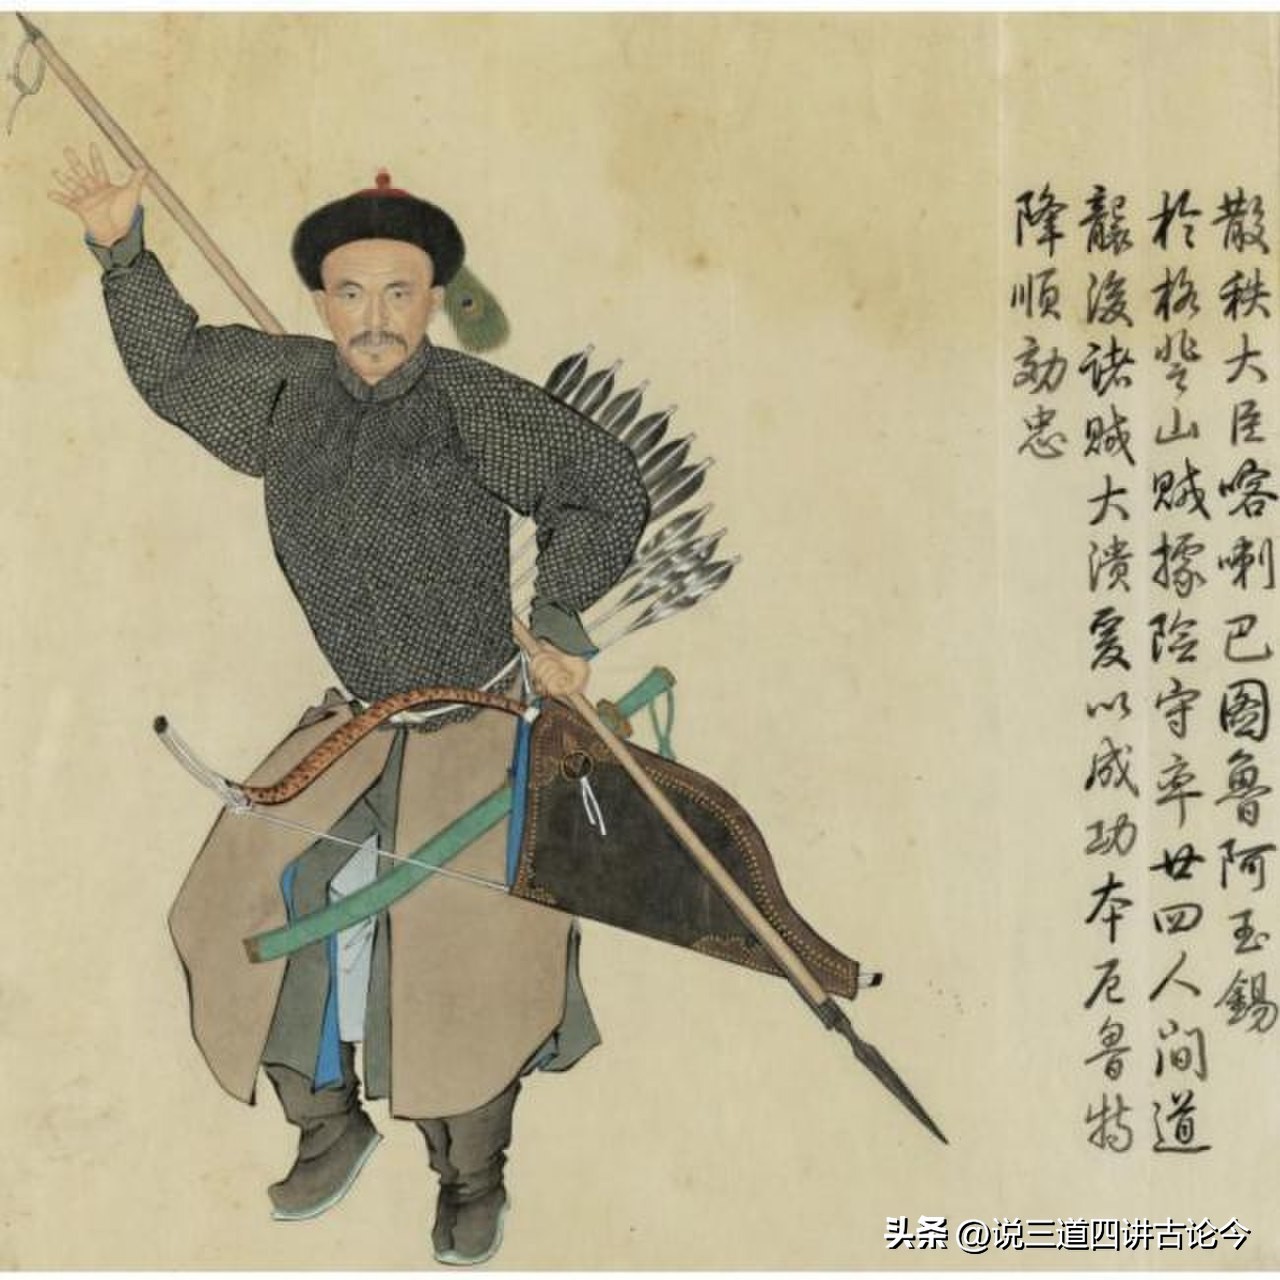 散秩大臣喀喇巴圖魯阿玉錫
於格登山賊據險守卒廿四人间道
襲後諸賊大潰爰以成功本厄魯特
降順効忠
头条 @说三道四讲古论今